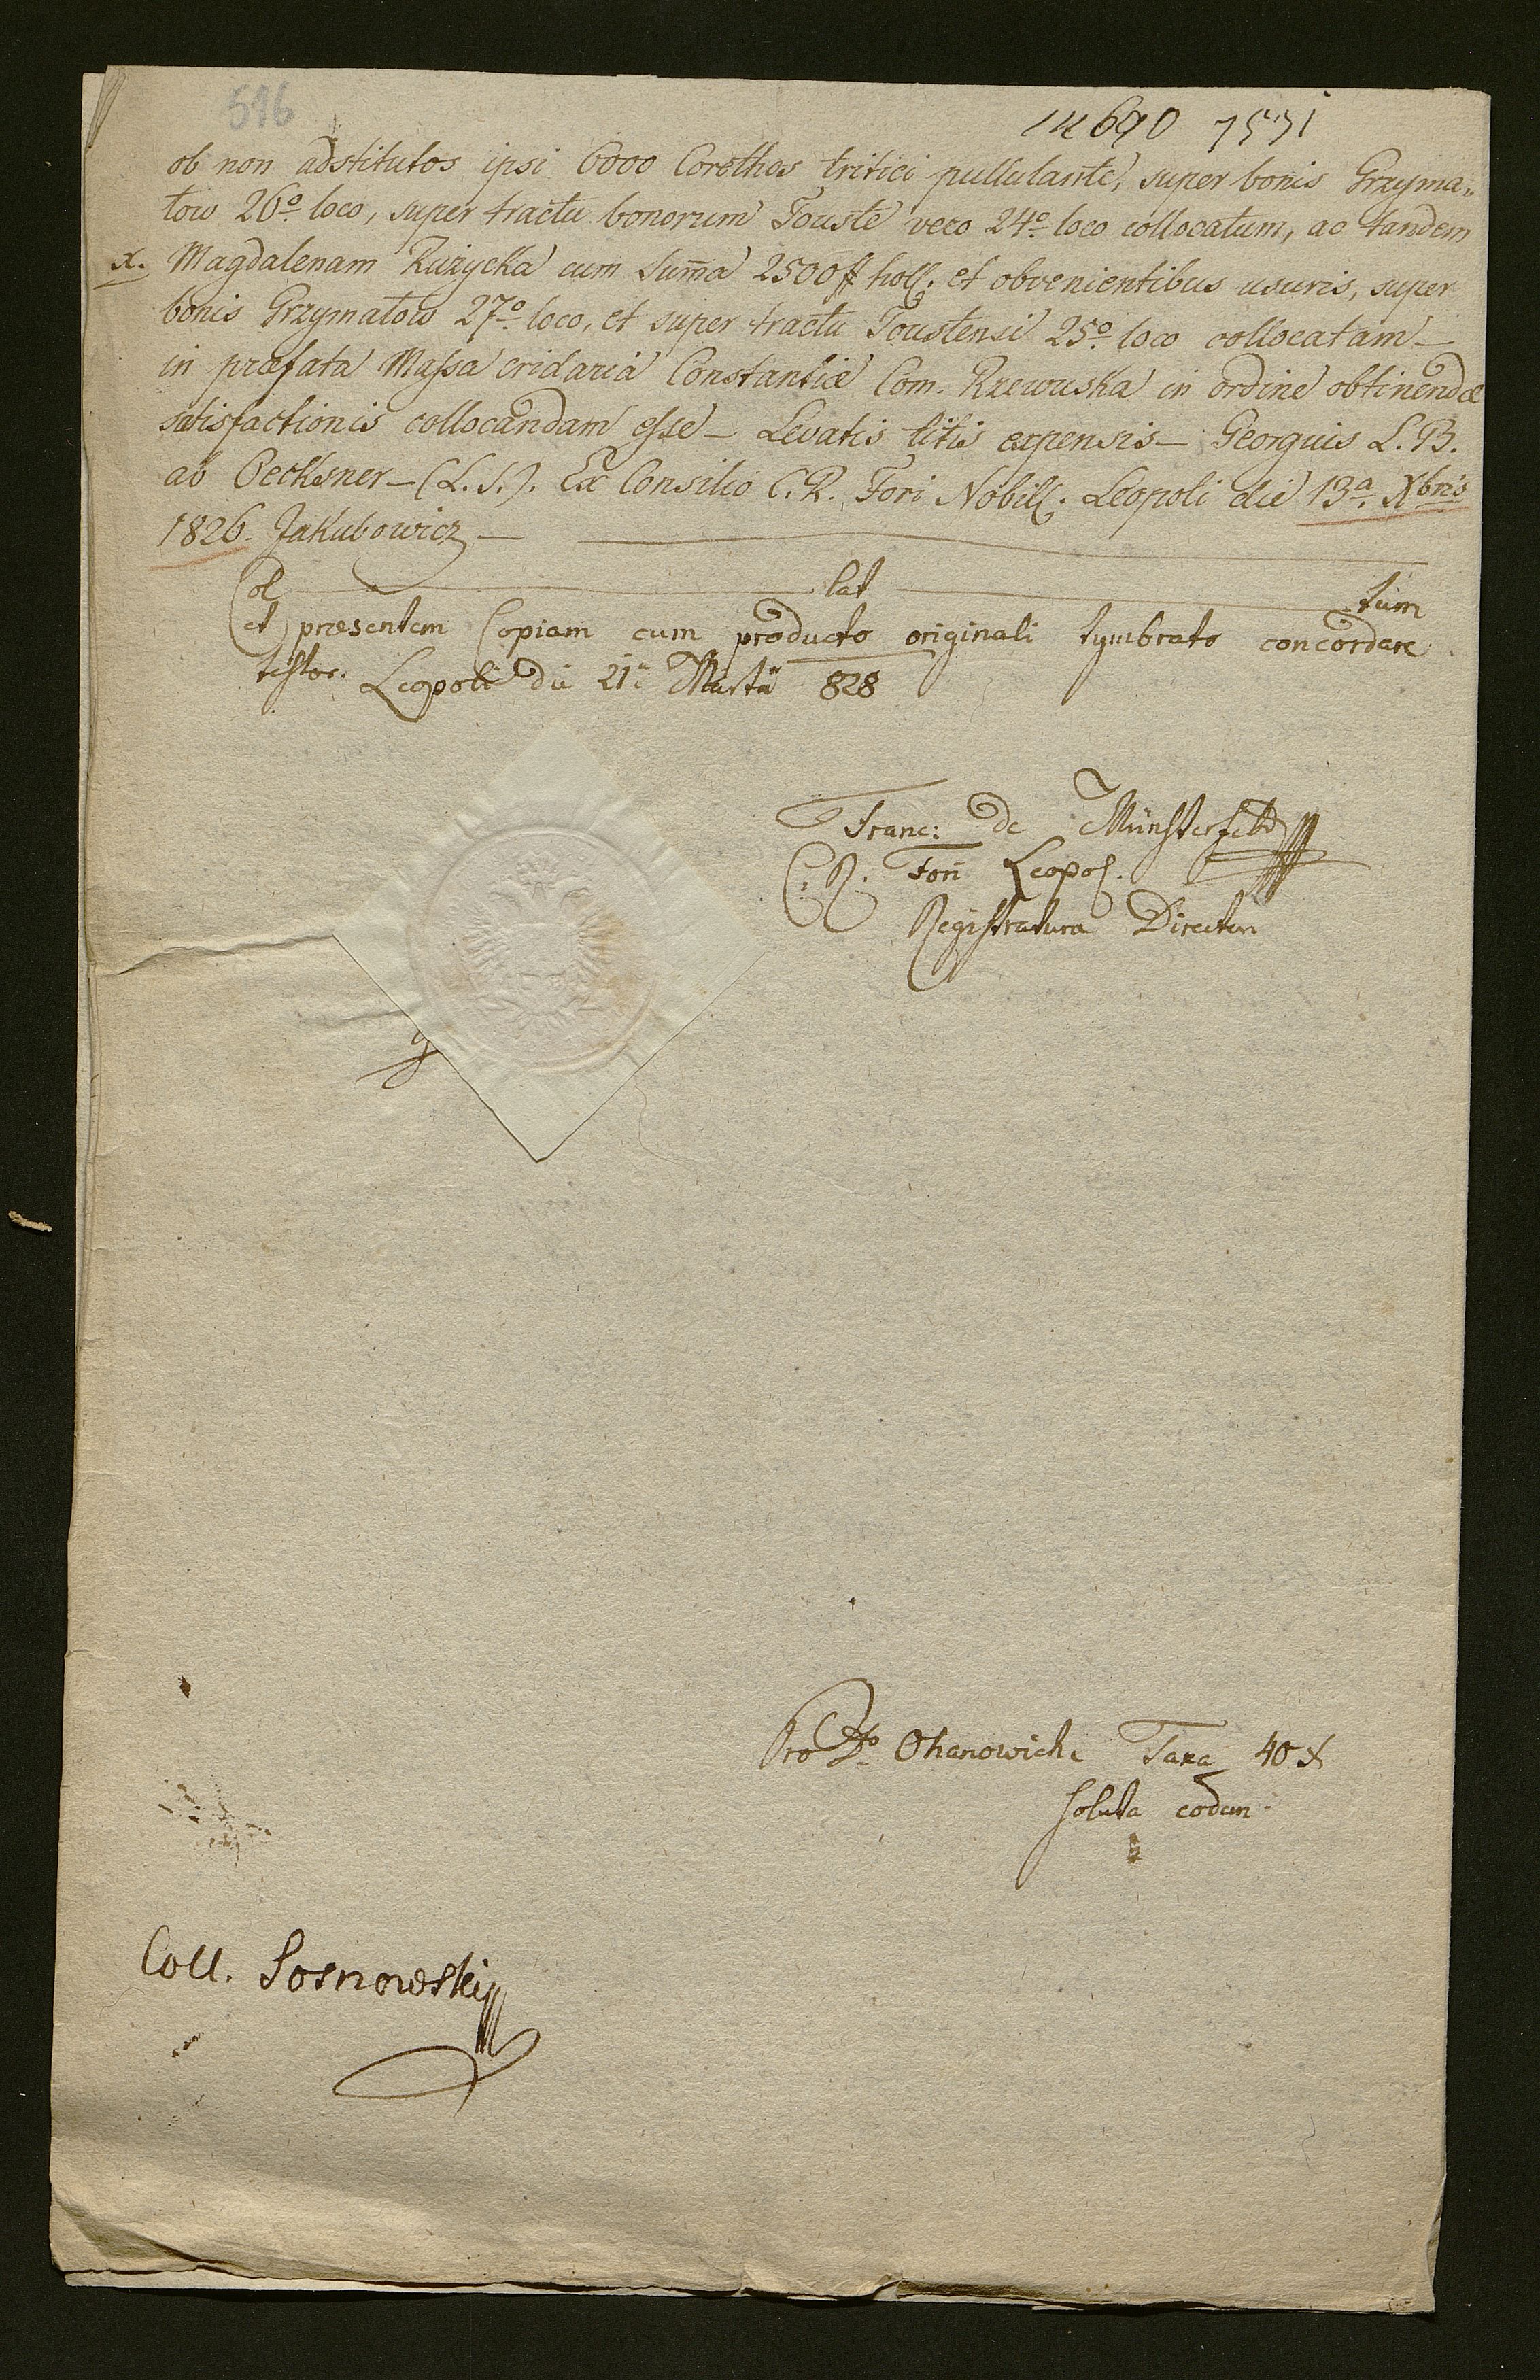 516
14690 7531
ob non adstitutos ipsi 6000 Corethos tritici pullulante, super bonis Grzyma„
tow 26º loco, super tractu bonorum Touste vero 24º loco collocatum, ac tandem
x. Magdalenam Ruzycka cum Sum̄a 2500 # holl. et obvenientibus usuris, super
bonis Grzymatow 27º loco, et super tractu Toustensi 25º loco collocatam —
in præfata Massa cridaria Constantiæ Com. Rzewuska in ordine obtinendæ
satisfactionis collocandam esse — Levatis litis expensis — Georguis L. B.
ab Oechsner — (L. S.). Ex Consilio C. R. Fori Nobil. Leopoli die 13ª Xbris
1826. Jakubowicz —
Col — lat — tum
et præsentem Copiam cum producto originali tymbrato concordare
testor. Leopoli die 21ª Martii 828
Franc: de Münsterfeld
C. R. Fori Leopol.
Registratura Director
Pro Dº Ohanowicz Taxa 40 x
soluta eodem
Coll. Sosnowski